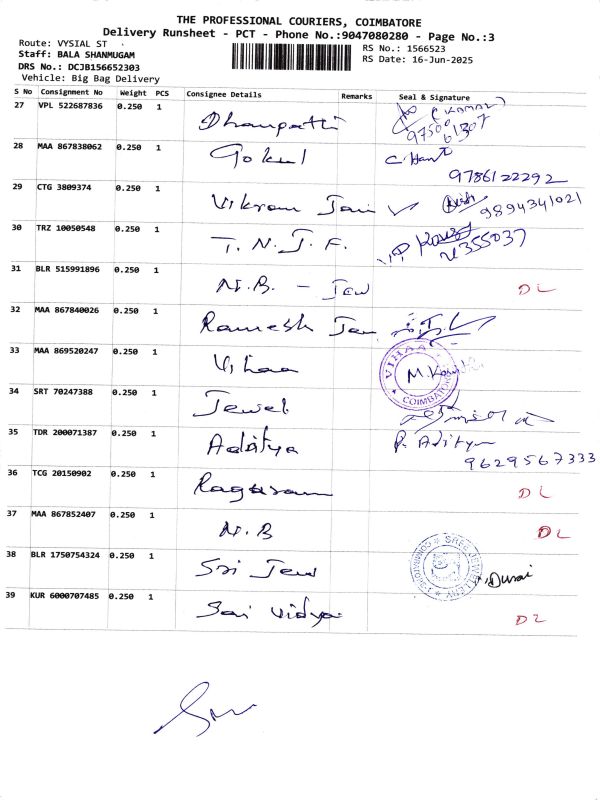 THE PROFESSIONAL COURIERS, COIMBATORE
Delivery Runsheet - PCT - Phone No.:9047080280 - Page No.:3
Route: VYSIAL ST
Staff: BALA SHANMUGAM
DRS No.: DCJB156652303
Vehicle: Big Bag Delivery
RS No.: 1566523
RS Date: 16-Jun-2025
S No Consignment No Weight PCS Consignee Details Remarks Seal & Signature
27 VPL 522687836 0.250 1 Dhanpathi (KAMAL) 97500 61307
28 MAA 867838062 0.250 1 Gokul 9786122292
29 CTG 3809374 0.250 1 Vikram Jain 9894341021
30 TRZ 10050548 0.250 1 T. N. J. F. 355037
31 BLR 515991896 0.250 1 N.B. - Jew DL
32 MAA 867840026 0.250 1 Ramesh Jew
33 MAA 869520247 0.250 1 Vihaa VIHAA COIMBATORE
34 SRT 70247388 0.250 1 Jewel
35 TDR 200071387 0.250 1 Aditya P. Aditya 9629567333
36 TCG 20150902 0.250 1 Raguram DL
37 MAA 867852407 0.250 1 N.B DL
38 BLR 1750754324 0.250 1 Sri Jew Durai
39 KUR 6000707485 0.250 1 Sai Vidya DL